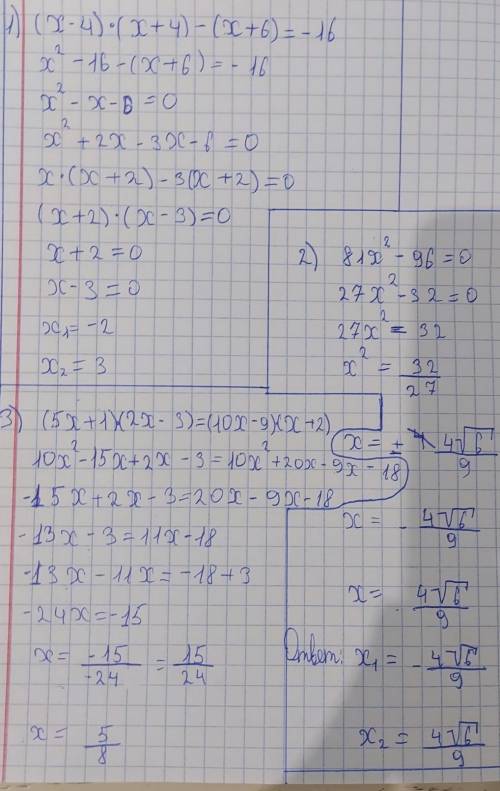 1) (x-4)·(x+4)-(x+6)=-16
x²-16-(x+6)=-16
x²-x-6=0
x²+2x-3x-6=0
x·(x+2)-3(x+2)=0
(x+2)·(x-3)=0
x+2=0
x-3=0
x₁=-2
x₂=3
2) 81x²-96=0
27x²-32=0
27x²=32
x²=32/27
x=±4√6/9
x=-4√6/9
x=4√6/9
Ответ: x₁=-4√6/9
x₂=4√6/9
3) (5x+1)(2x-3)=(10x-9)(x+2)
10x²-15x+2x-3=10x²+20x-9x-18
-15x+2x-3=20x-9x-18
-13x-3=11x-18
-13x-11x=-18+3
-24x=-15
x=-15/-24=15/24
x=5/8